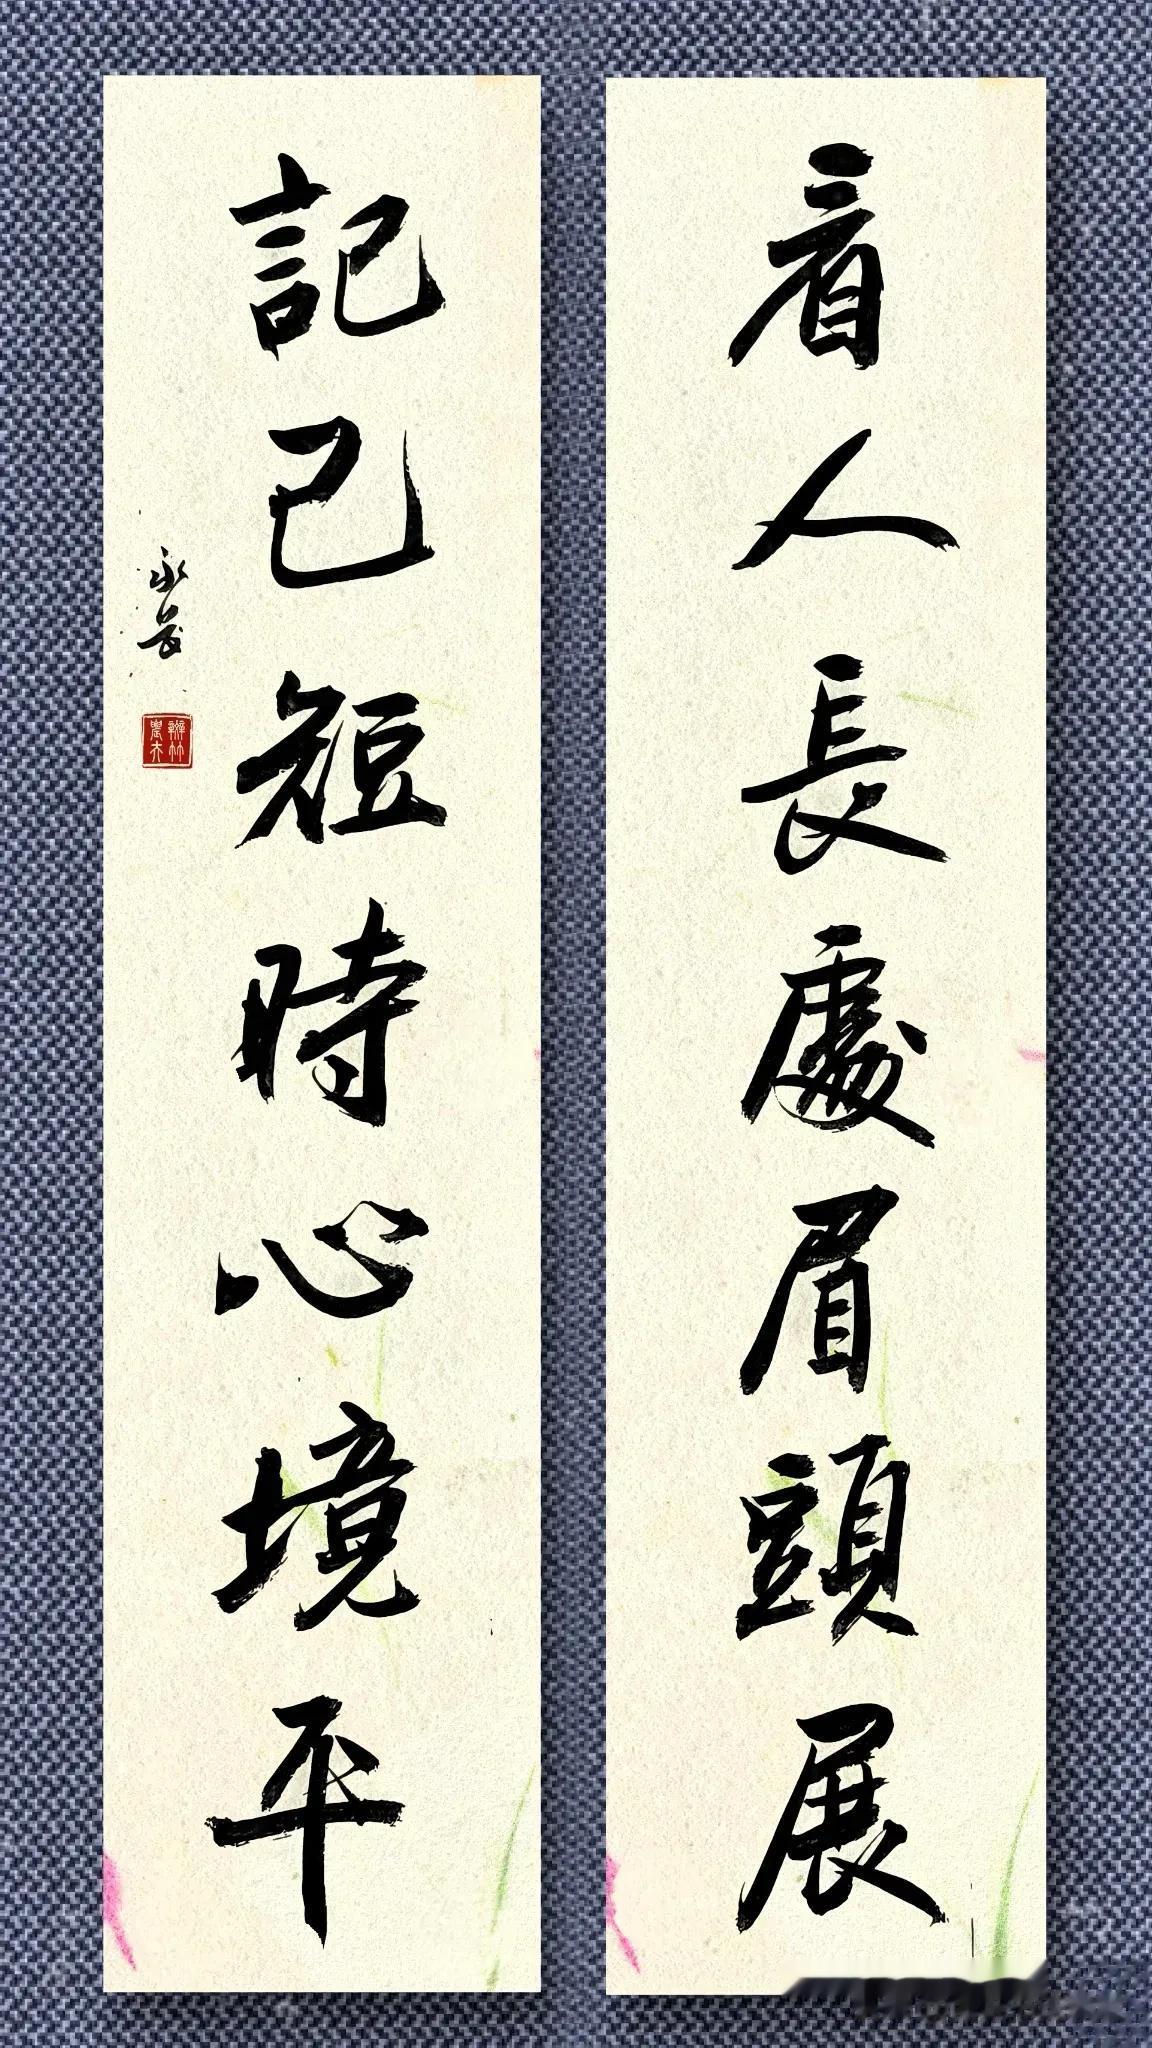 看人長處眉頭展
記己短時心境平